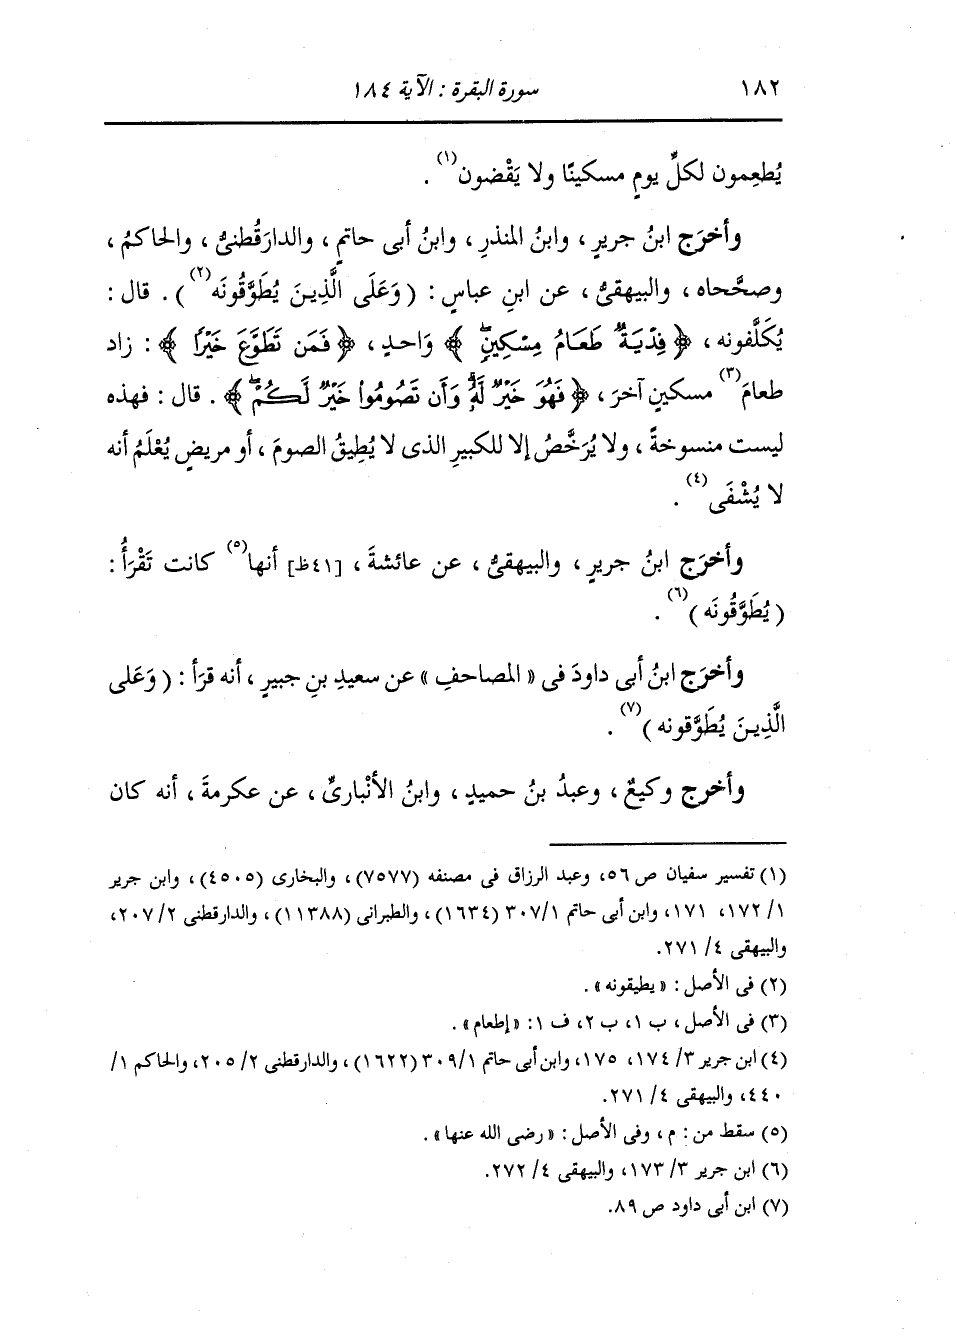 ١٨٢ سورة البقرة : الآية ١٨٤
يُطعِمون لكلِّ يومٍ مسكينًا ولا يَقْضون(١) .
وأخرَج ابنُ جريرٍ ، وابنُ المنذرِ ، وابنُ أبى حاتمٍ ، والدارَقُطنىُّ ، والحاكمُ ،
وصحَّحاه ، والبيهقىُّ ، عن ابنِ عباسٍ : ( وَعَلَى الَّذِينَ يُطَوَّقُونَه(٢) ) . قال :
يُكَلَّفونه ، ﴿ فِدْيَةٌ طَعَامُ مِسْكِينٍ ﴾ وَاحدٍ ، ﴿ فَمَن تَطَوَّعَ خَيْرًا ﴾ : زاد
طعامَ(٣) مسكينٍ آخرَ ، ﴿ فَهُوَ خَيْرٌ لَّهُ وَأَن تَصُومُوا خَيْرٌ لَّكُمْ ﴾ . قال : فهذه
ليست منسوخةً ، ولا يُرَخَّصُ إلا للكبيرِ الذى لا يُطِيقُ الصومَ ، أو مريضٍ يُعْلَمُ أنه
لا يُشْفَى(٤) .
وأخرَج ابنُ جريرٍ ، والبيهقىُّ ، عن عائشةَ ، [٤١ظ] أنها(٥) كانت تَقْرَأُ :
( يُطَوَّقُونَه )(٦) .
وأخرَج ابنُ أبى داودَ فى « المصاحفِ » عن سعيدِ بنِ جبيرٍ ، أنه قرَأ : ( وَعَلى
الَّذِينَ يُطَوَّقونه )(٧) .
وأخرج وكيعٌ ، وعبدُ بنُ حميدٍ ، وابنُ الأنْبارىِّ ، عن عكرمةَ ، أنه كان
(١) تفسير سفيان ص ٥٦، وعبد الرزاق فى مصنفه (٧٥٧٧)، والبخارى (٤٥٠٥)، وابن جرير
١٧٢/١، ١٧١، وابن أبى حاتم ٣٠٧/١ (١٦٣٤)، والطبرانى (١١٣٨٨)، والدارقطنى ٢٠٧/٢،
والبيهقى ٢٧١/٤.
(٢) فى الأصل : « يطيقونه » .
(٣) فى الأصل ، ب ١، ب ٢، ف ١: « إطعام » .
(٤) ابن جرير ١٧٤/٣، ١٧٥، وابن أبى حاتم ٣٠٩/١ (١٦٢٢)، والدارقطنى ٢٠٥/٢، والحاكم ١/
٤٤٠، والبيهقى ٢٧١/٤.
(٥) سقط من : م ، وفى الأصل : « رضى الله عنها » .
(٦) ابن جرير ١٧٣/٣، والبيهقى ٢٧٢/٤.
(٧) ابن أبى داود ص ٨٩.